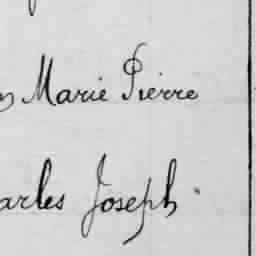 Marie Pierre
arles Joseph